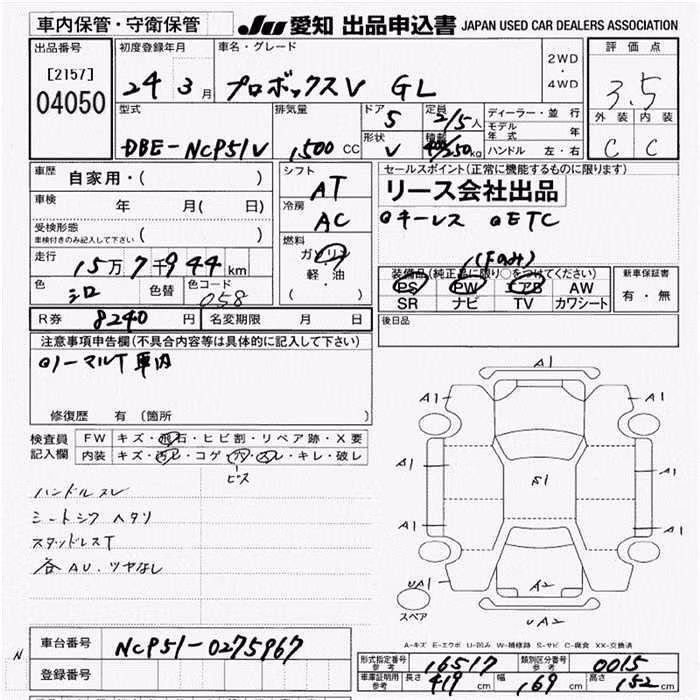 車内保管・守衛保管 JU 愛知 出品申込書 JAPAN USED CAR DEALERS ASSOCIATION
出品番号 初度登録年月 車名・グレード 2WD・4WD 評価点
[2157] 04050 24 3月 プロボックスV GL 3.5
型式 排気量 ドア 5 定員 2/5人 ディーラー・並行 外装 内装
DBE-NCP51V 1,500 CC 形状 V 積載 400/250kg モデル年式 年 C C
ハンドル 左・右
車歴 自家用・( ) シフト AT セールスポイント(正常に機能するものに限ります)
リース会社出品
車検 年 月( 日) 冷房 AC キーレス ETC
受検形態 車検付きのみ記入して下さい ( )
走行 15万7千944km 燃料 ガソリン 軽・油 ( ) (Fのみ)
装備品(純正品に限り○をつけてください) 新車保証書
色 シロ 色替 色コード 058 PS PW エアB AW 有・無
SR ナビ TV カワシート
R券 8240円 名変期限 月 日 後日品
注意事項申告欄(不具合内容等は具体的に記入して下さい)
ノーマルT車内
修復歴 有 (箇所
検査員記入欄 FW キズ・飛石・ヒビ割・リペア跡・X要
内装 キズ・汚レ・コゲ・穴・スレ・キレ・破レ
ビス
ハンドルスレ
シートシワ ヘタリ
スタッドレスT
各AU、ツヤなし
A1
A1 A1
A1 E1 A1
A1 A1
UA1 A2 A1
スペア UA2
A-キズ E-エクボ U-凹み W-補修跡 S-サビ C-腐食 XX-交換済
N 車台番号 NCP51-0275967
登録番号
形式指定番号 参考 16517 類別区分番号 参考 0015
車庫証明用 参考 長さ 419cm 幅 169cm 高さ 152cm